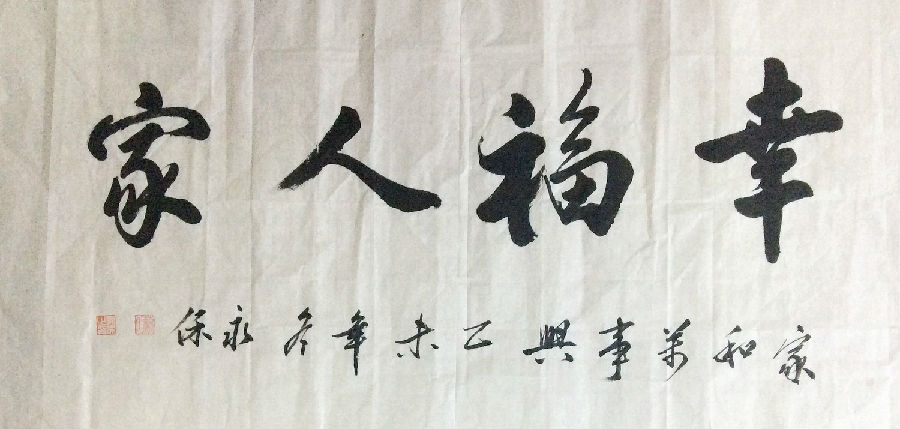 幸福人家
家和萬事興 乙未年冬 永保